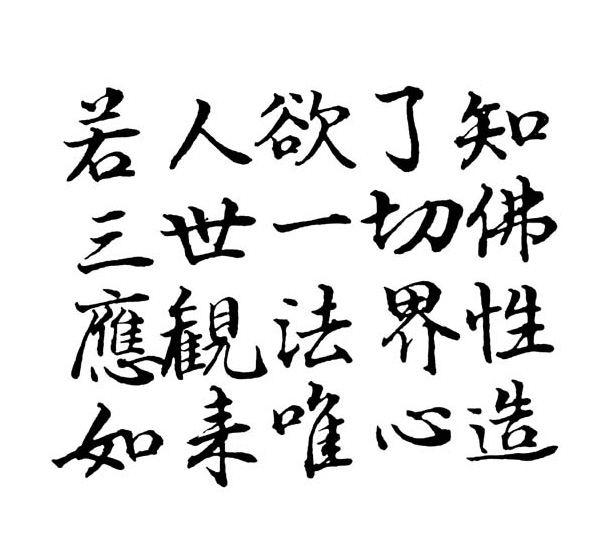 若人欲了知
三世一切佛
應觀法界性
如来唯心造